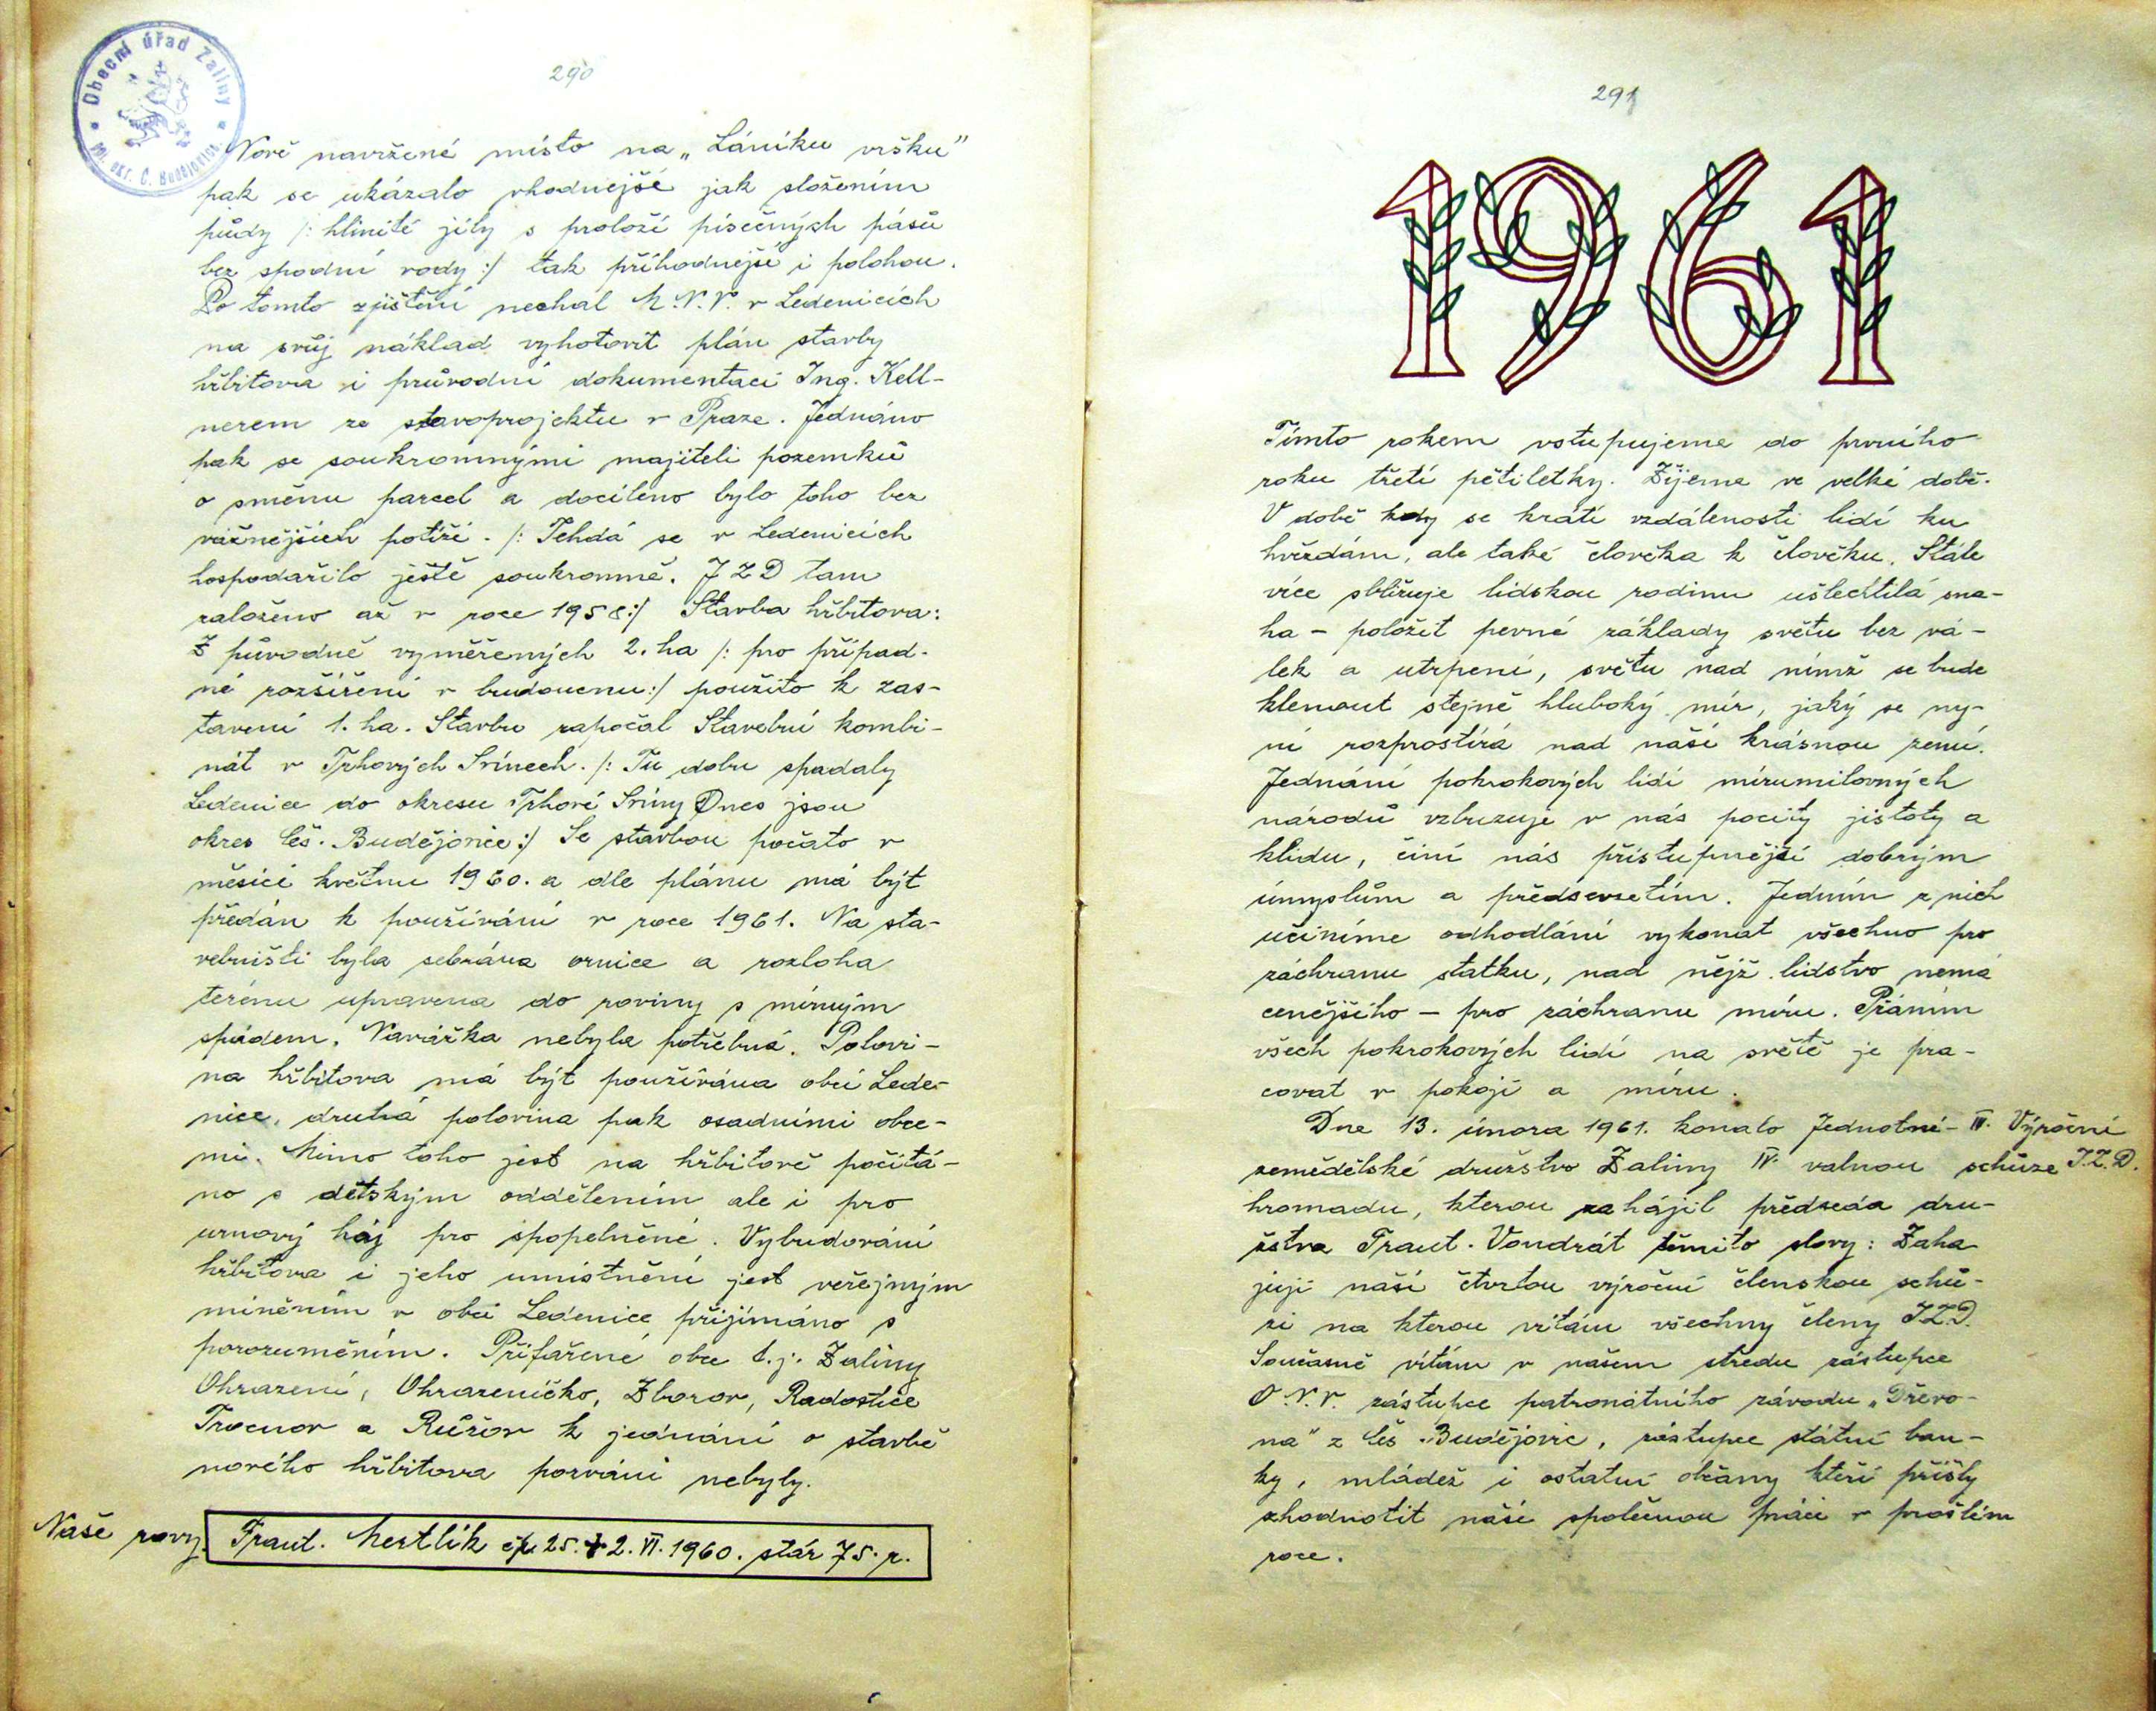 Obecní úřad Zaliny
okr. Č. Budějovice
290
Nově navržené místo na „Láníku vršku"
pak se ukázalo vhodnejšé jak složením
půdy /: hlinité jíly s proloží písečných pásů
bez spodní vody :/ tak příhodnejší i polohou.
Po tomto zjištění nechal M.N.V. v Ledenicích
na svůj náklad vyhotovit plán stavby
hřbitova i průvodní dokumentaci Ing. Kell-
nerem ze stavoprojektu v Praze. Jednáno
pak se soukromnými majiteli pozemků
o směnu parcel a docíleno bylo toho bez
vážnějších potíží. /: Tehdá se v Ledenicích
hospodařilo ještě soukromně. JZD tam
založeno až v roce 1958 :/ Stavba hřbitova:
Z původně vyměřených 2. ha /: pro případ-
né rozšíření v budoucnu :/ použito k zas-
tavení 1. ha. Stavbu započal Stavební kombi-
nát v Trhových Svinech. /: Tu dobu spadaly
Ledenice do okresu Trhové Sviny Dnes jsou
okres Čes. Budějovice :/ Se stavbou počato v
měsíci květnu 1960. a dle plánu má být
předán k používání v roce 1961. Na sta-
veništi byla sebrána ornice a rozloha
terénu upravena do roviny s mírným
spádem. Navážka nebyla potřebná. Polovi-
na hřbitova má být používána obcí Lede-
nice, druhá polovina pak osadními obce-
mi. Mimo toho jest na hřbitově počítá-
no s dětským oddělením ale i pro
urnový háj pro spopelněné. Vybudování
hřbitova i jeho umístnění jest veřejným
míněním v obci Ledenice přijímáno s
porozuměním. Přifařené obce t.j. Zaliny
Ohrazení, Ohrazeníčko, Zborov, Radostice
Trocnov a Růžov k jednání o stavbě
nového hřbitova pozváni nebyly.
Naše rovy. Frant. Mertlík čp. 25. + 2. VI. 1960. stár 75. r.
291
1961
Tímto rokem vstupujeme do prvního
roku třetí pětiletky. Žijeme ve velké době.
V době kdy se krátí vzdálenosti lidí ku
hvězdám, ale také člověka k člověku. Stále
více sbližuje lidskou rodinu ušlechtilá sna-
ha – položit pevné základy světu bez vá-
lek a utrpení, světu nad nímž se bude
klenout stejně hluboký mír, jaký se ny-
ní rozprostírá nad naší krásnou zemí.
Jednání pokrokových lidí mírumilovných
národů vzbuzuje v nás pocity jistoty a
klidu, činí nás přístupnější dobrým
úmyslům a předsevzetím. Jedním z nich
učiníme odhodlání vykonat všechno pro
záchranu statku, nad nějž lidstvo nemá
cenějšího – pro záchranu míru. Přáním
všech pokrokových lidí na světě je pra-
covat v pokoji a míru.
Dne 13. února 1961. konalo Jednotné- IV. Výroční
zemědělské družstvo Zaliny IV. valnou schůze J.Z.D.
hromadu, kterou zahájil předseda dru-
žstva Frant. Vondrát těmito slovy: Zaha
juji naší čtvrtou výroční členskou schů-
zi na kterou vítám všechny členy JZD.
Současně vítám v našem středu zástupce
O.N.V. zástupce patronátního závodu „Dřevo-
na" z Čes. Budějovic, zástupce státní ban-
ky, mládež i ostatní občany kteří příšly
zhodnotit naší společnou práci v prošlém
roce.